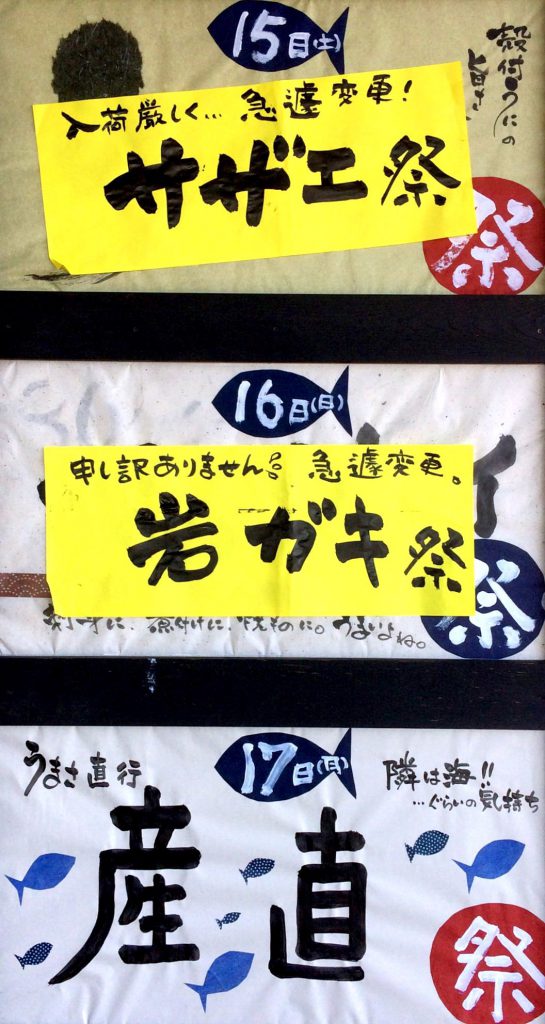 15日(土)
殻付うにの
旨さ
入荷厳しく… 急遽変更!
サザエ祭
祭
16日(日)
申し訳ありません。 急遽変更。
岩ガキ祭
イ
祭
刻身に、煮付けに、焼ものに。うまいよね。
17日(月)
うまさ直行
隣は海!!
…ぐらいの気持ち
産直
祭